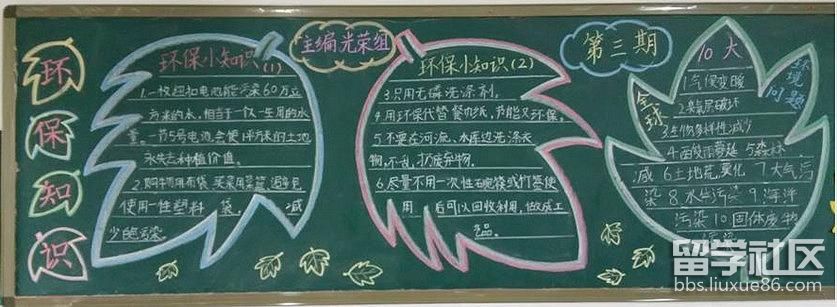 环
保
知
识
环保小知识(1)
1.一枚纽扣电池能污染60万立
方米的水，相当于一个人一生用的水
量。一节5号电池会使1平方米的土地
永失去种植价值。
2.购物用布袋 买菜用菜篮，避免
使用一性塑料 袋。 减
少白色污染。
主编光荣组
环保小知识(2)
3.只用无磷洗涤剂。
4.用环保代替餐巾纸，节能又环保。
5.不要在河流、水库边洗涤衣
物，不乱扔废弃物。
6.尽量不用一次性石碗筷或打签使
用 后可以回收利用，做成工
艺品。
第三期
10大
全球
环境
问题
1气候变暖
2臭氧层破坏
3生物多样性减少
4酸雨蔓延 5森林
减 6土地荒漠化 7大气污
染 8水体污染 9海洋
污染 10固体废物
污染
留学社区
bbs.liuxue86.com